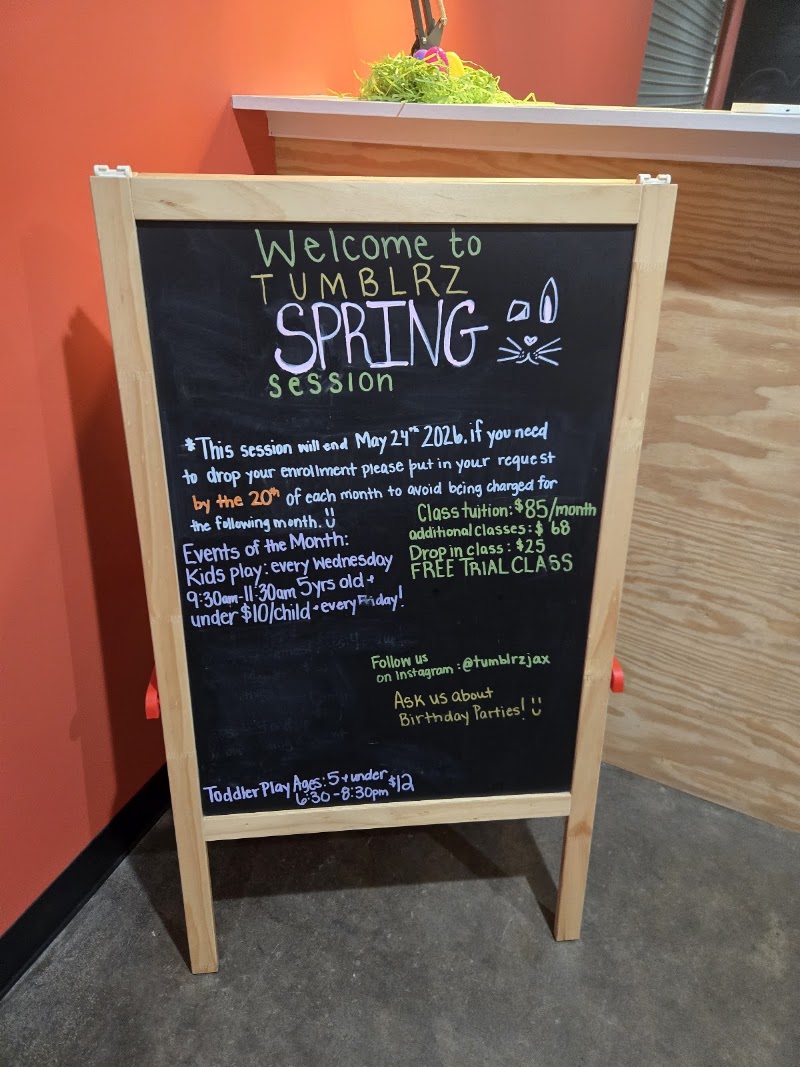 Welcome to
TUMBLRZ
SPRING
session
*This session will end May 24th 2026, if you need
to drop your enrollment please put in your request
by the 20th of each month to avoid being charged for
the following month.
Class tuition: $85/month
additional classes: $ 68
Drop in class: $25
FREE TRIAL CLASS
Events of the Month:
Kids play: every Wednesday
9:30am-11:30am 5yrs old +
under $10/child + every Friday!
Follow us
on Instagram: @tumblrzjax
Ask us about
Birthday Parties!
Toddler Play Ages: 5 + under $12
6:30-8:30pm